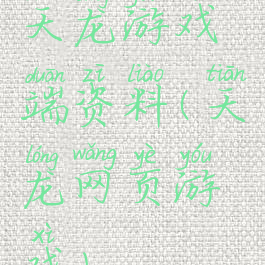 天龙游戏
duān zī liào tiān
端资料(天
lóng wǎng yè yóu
龙网页游
xì
戏)